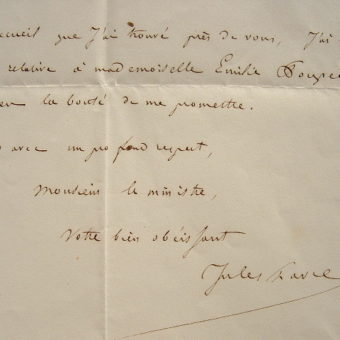 accueil que J'ai trouvé près de vous, J'ai
relative à mademoiselle Emilie
la bonté de me promettre.
avec un profond respect,
Monsieur le ministre,
Votre bien obéissant
Jules Favre